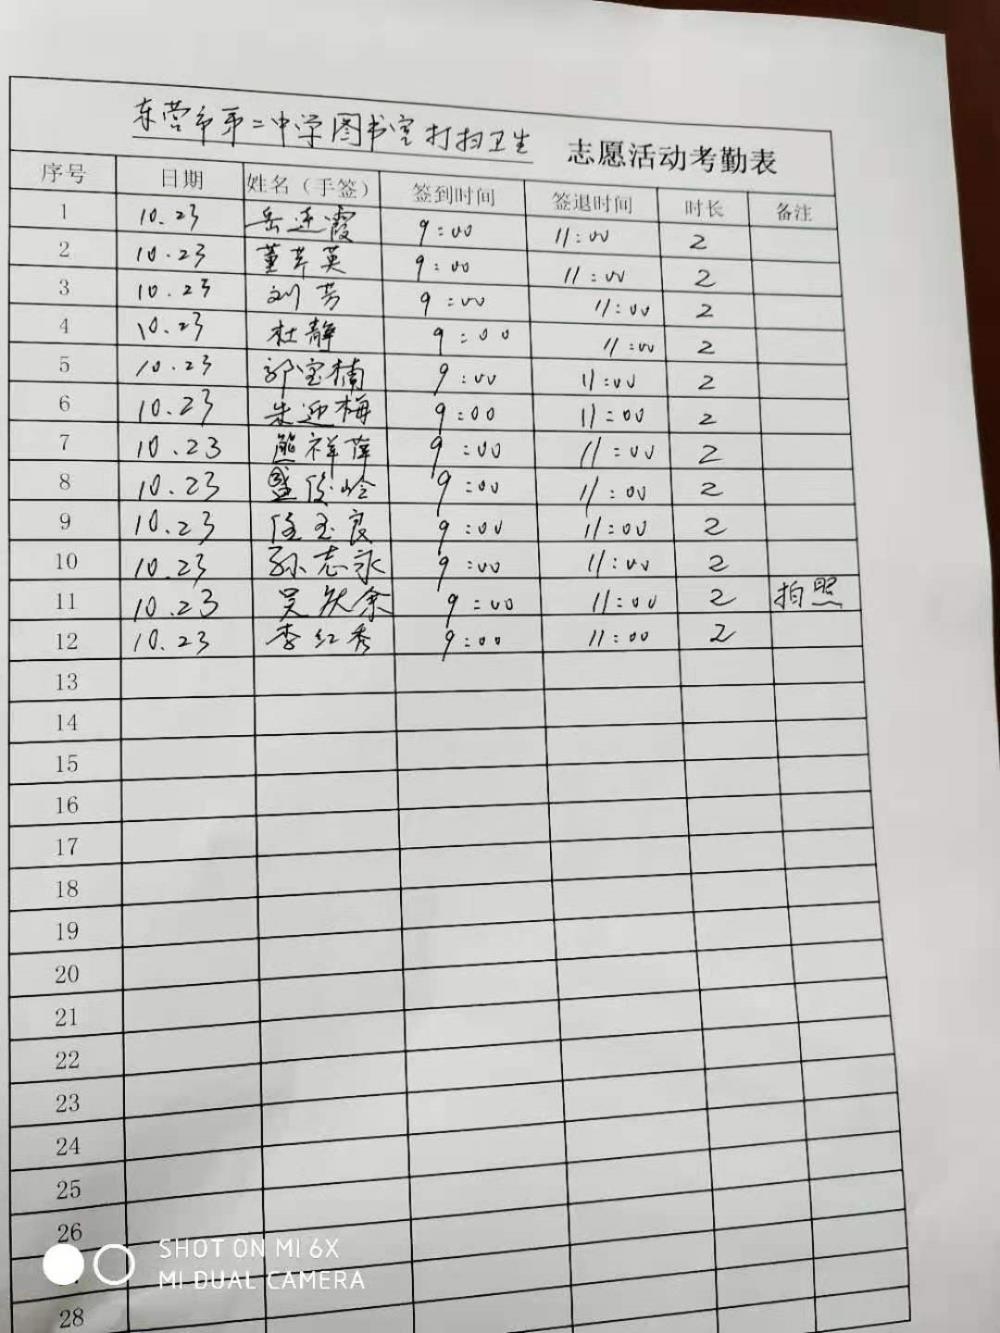 东营市第二中学图书室打扫卫生 志愿活动考勤表
序号 日期 姓名（手签） 签到时间 签退时间 时长 备注
1 10.23 岳连霞 9:00 11:00 2
2 10.23 董芹英 9:00 11:00 2
3 10.23 刘芳 9:00 11:00 2
4 10.23 杜静 9:00 11:00 2
5 10.23 郭宝楠 9:00 11:00 2
6 10.23 朱迎梅 9:00 11:00 2
7 10.23 熊祥萍 9:00 11:00 2
8 10.23 盛俊岭 9:00 11:00 2
9 10.23 任玉良 9:00 11:00 2
10 10.23 孙志永 9:00 11:00 2
11 10.23 吴 余 9:00 11:00 2 拍照
12 10.23 李红秀 9:00 11:00 2
13
14
15
16
17
18
19
20
21
22
23
24
25
26
28
SHOT ON MI 6X
MI DUAL CAMERA